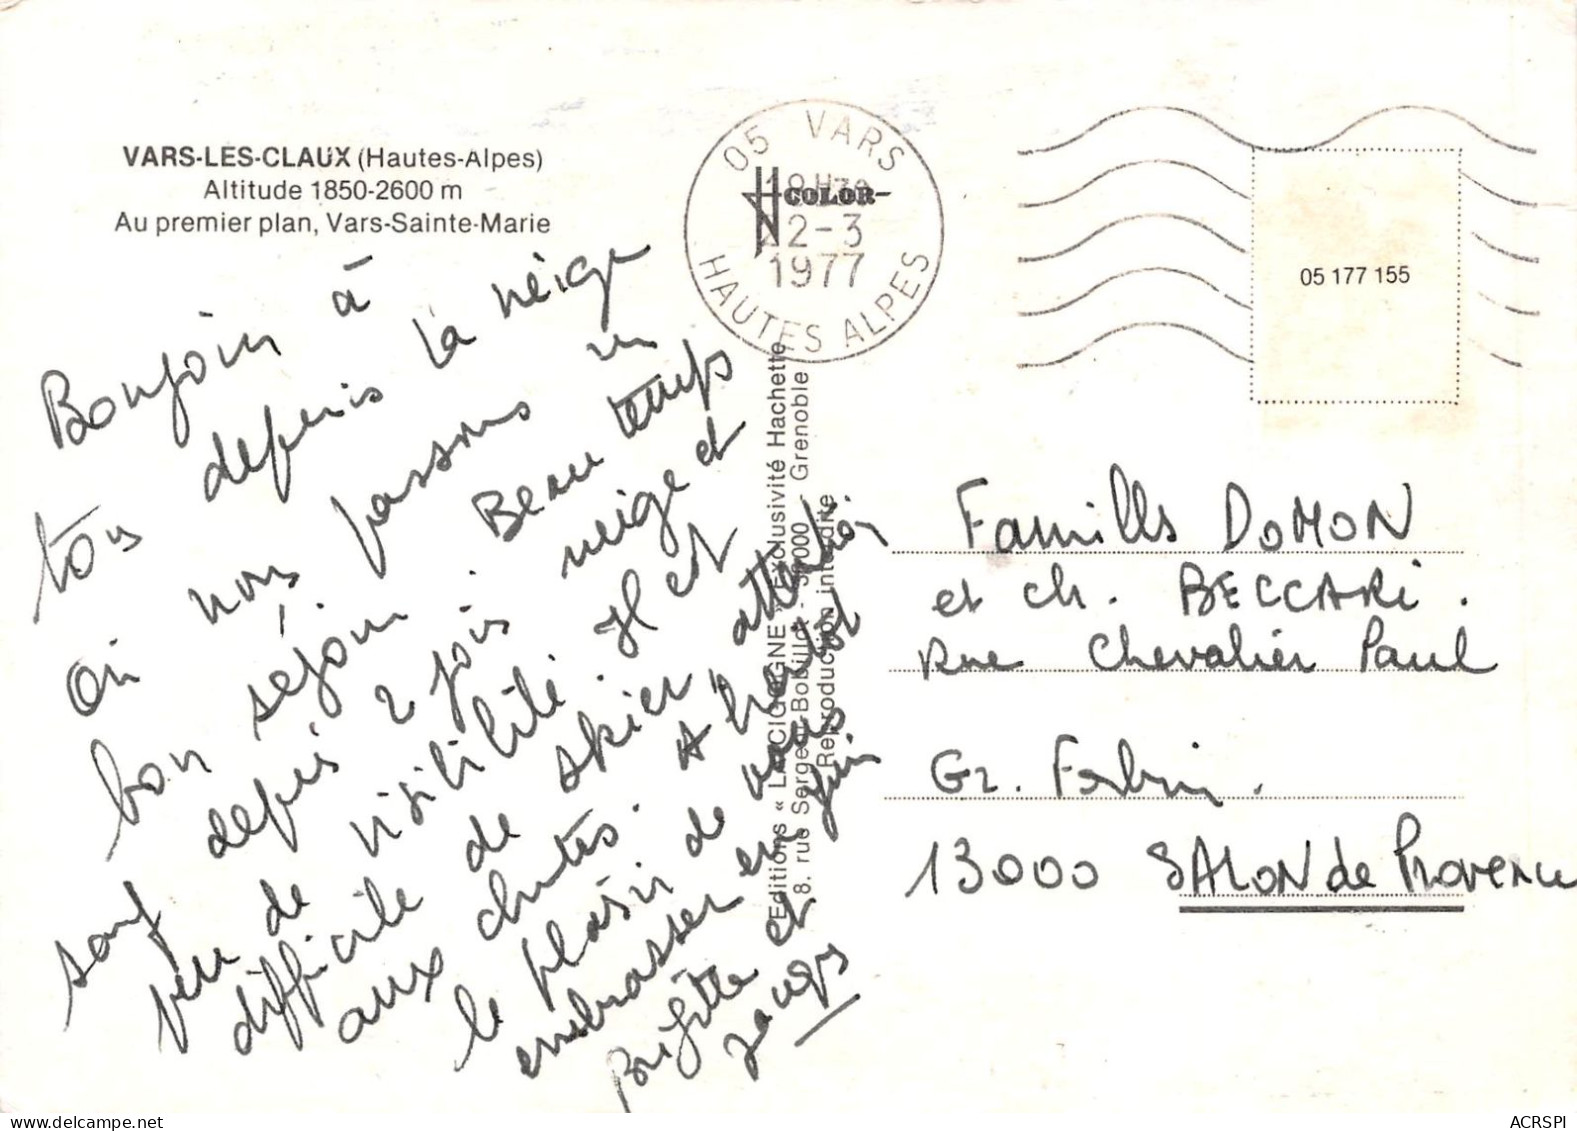 VARS-LES-CLAUX (Hautes-Alpes)
Altitude 1850-2600 m
Au premier plan, Vars-Sainte-Marie
Bonjour à
tous depuis la neige
où nous passons un
bon séjour. Beau temps
sauf depuis 2 jours neige et
peu de visibilité. Il est
difficile de skier, attention
aux chutes. A bientôt
le plaisir de vous
embrasser en Juin
Brigitte et
Jacques
05 VARS
18H30
22-3
1977
HAUTES ALPES
COLOR
Editions « LA CIGOGNE » Exclusivité Hachette
8. rue Serge Bobillot - 38000 Grenoble
Reproduction interdite
05 177 155
Familles DOMON
et Ch. BECCARI.
Rue Chevalier Paul
Gz. Forbin.
13000 SALON de Provence
delcampe.net
ACRSPI